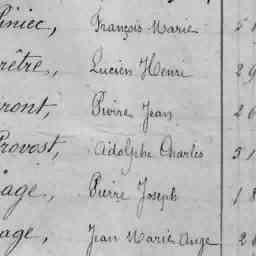 Piniec, François Marie 5
rêtre, Lucien Henri 29
ront, Pierre Jean 26
Provost, Adolphe Charles 51
age, Pierre Joseph 18
age, Jean Marie Ange 2